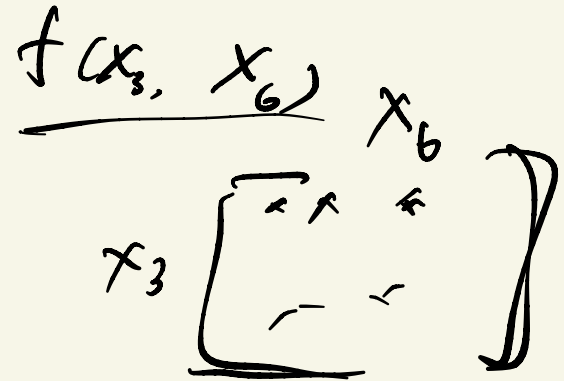 f(x₃, x₆)
x₆
x₃